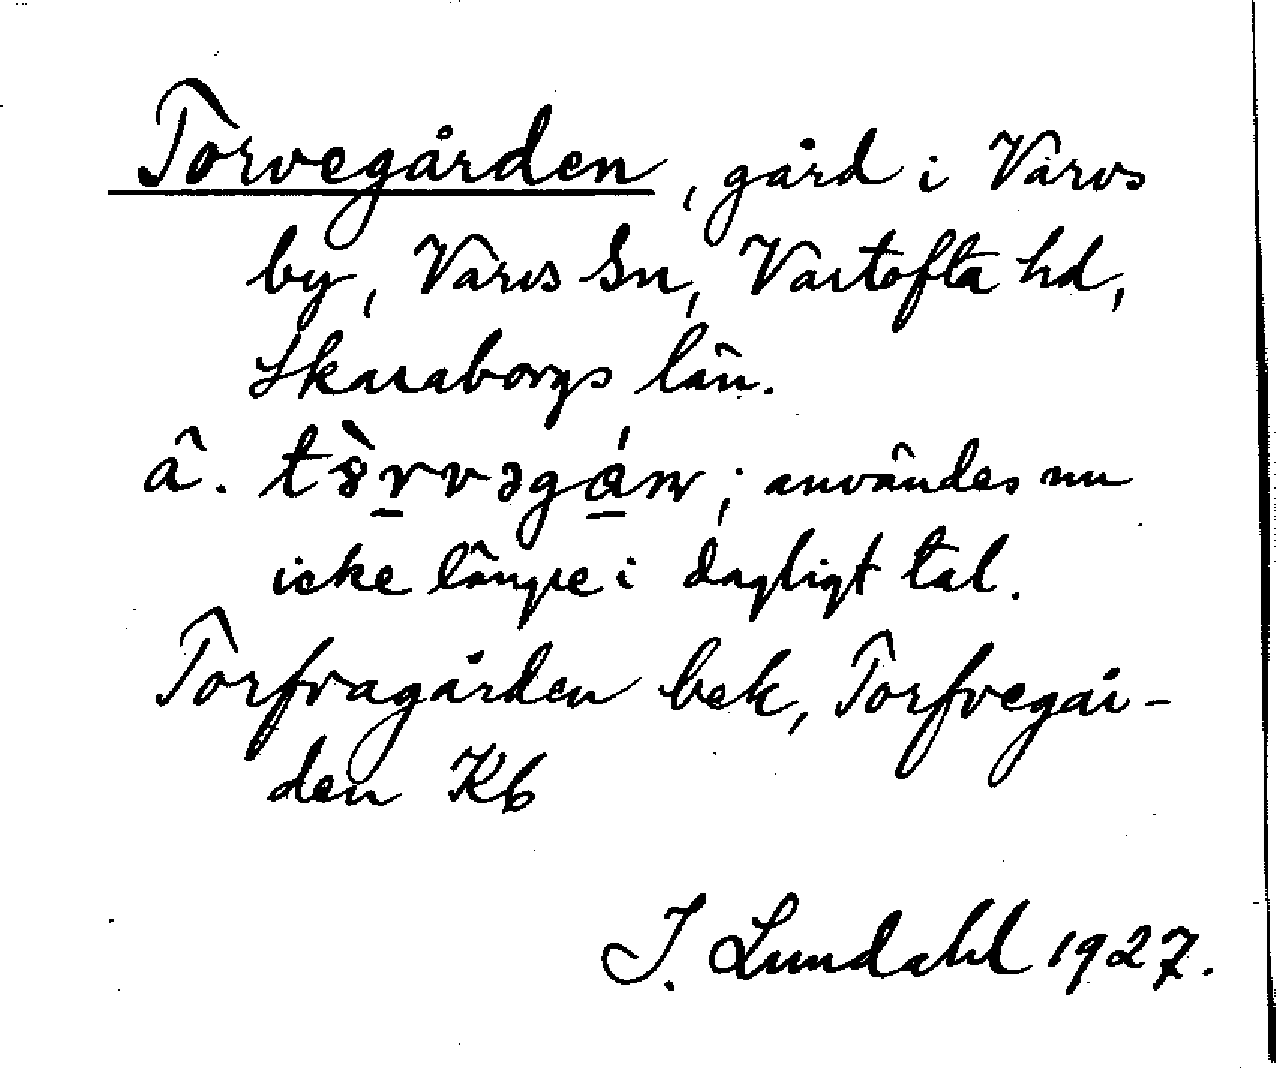 Torvegården, gård i Varvs
by, Varvs Sn, Vartofta hd,
Skaraborgs län.
användes nu
icke längre i dagligt tal.
Torfvagården bek, Torfvegår-
den Kb
I. Lundahl 1927.